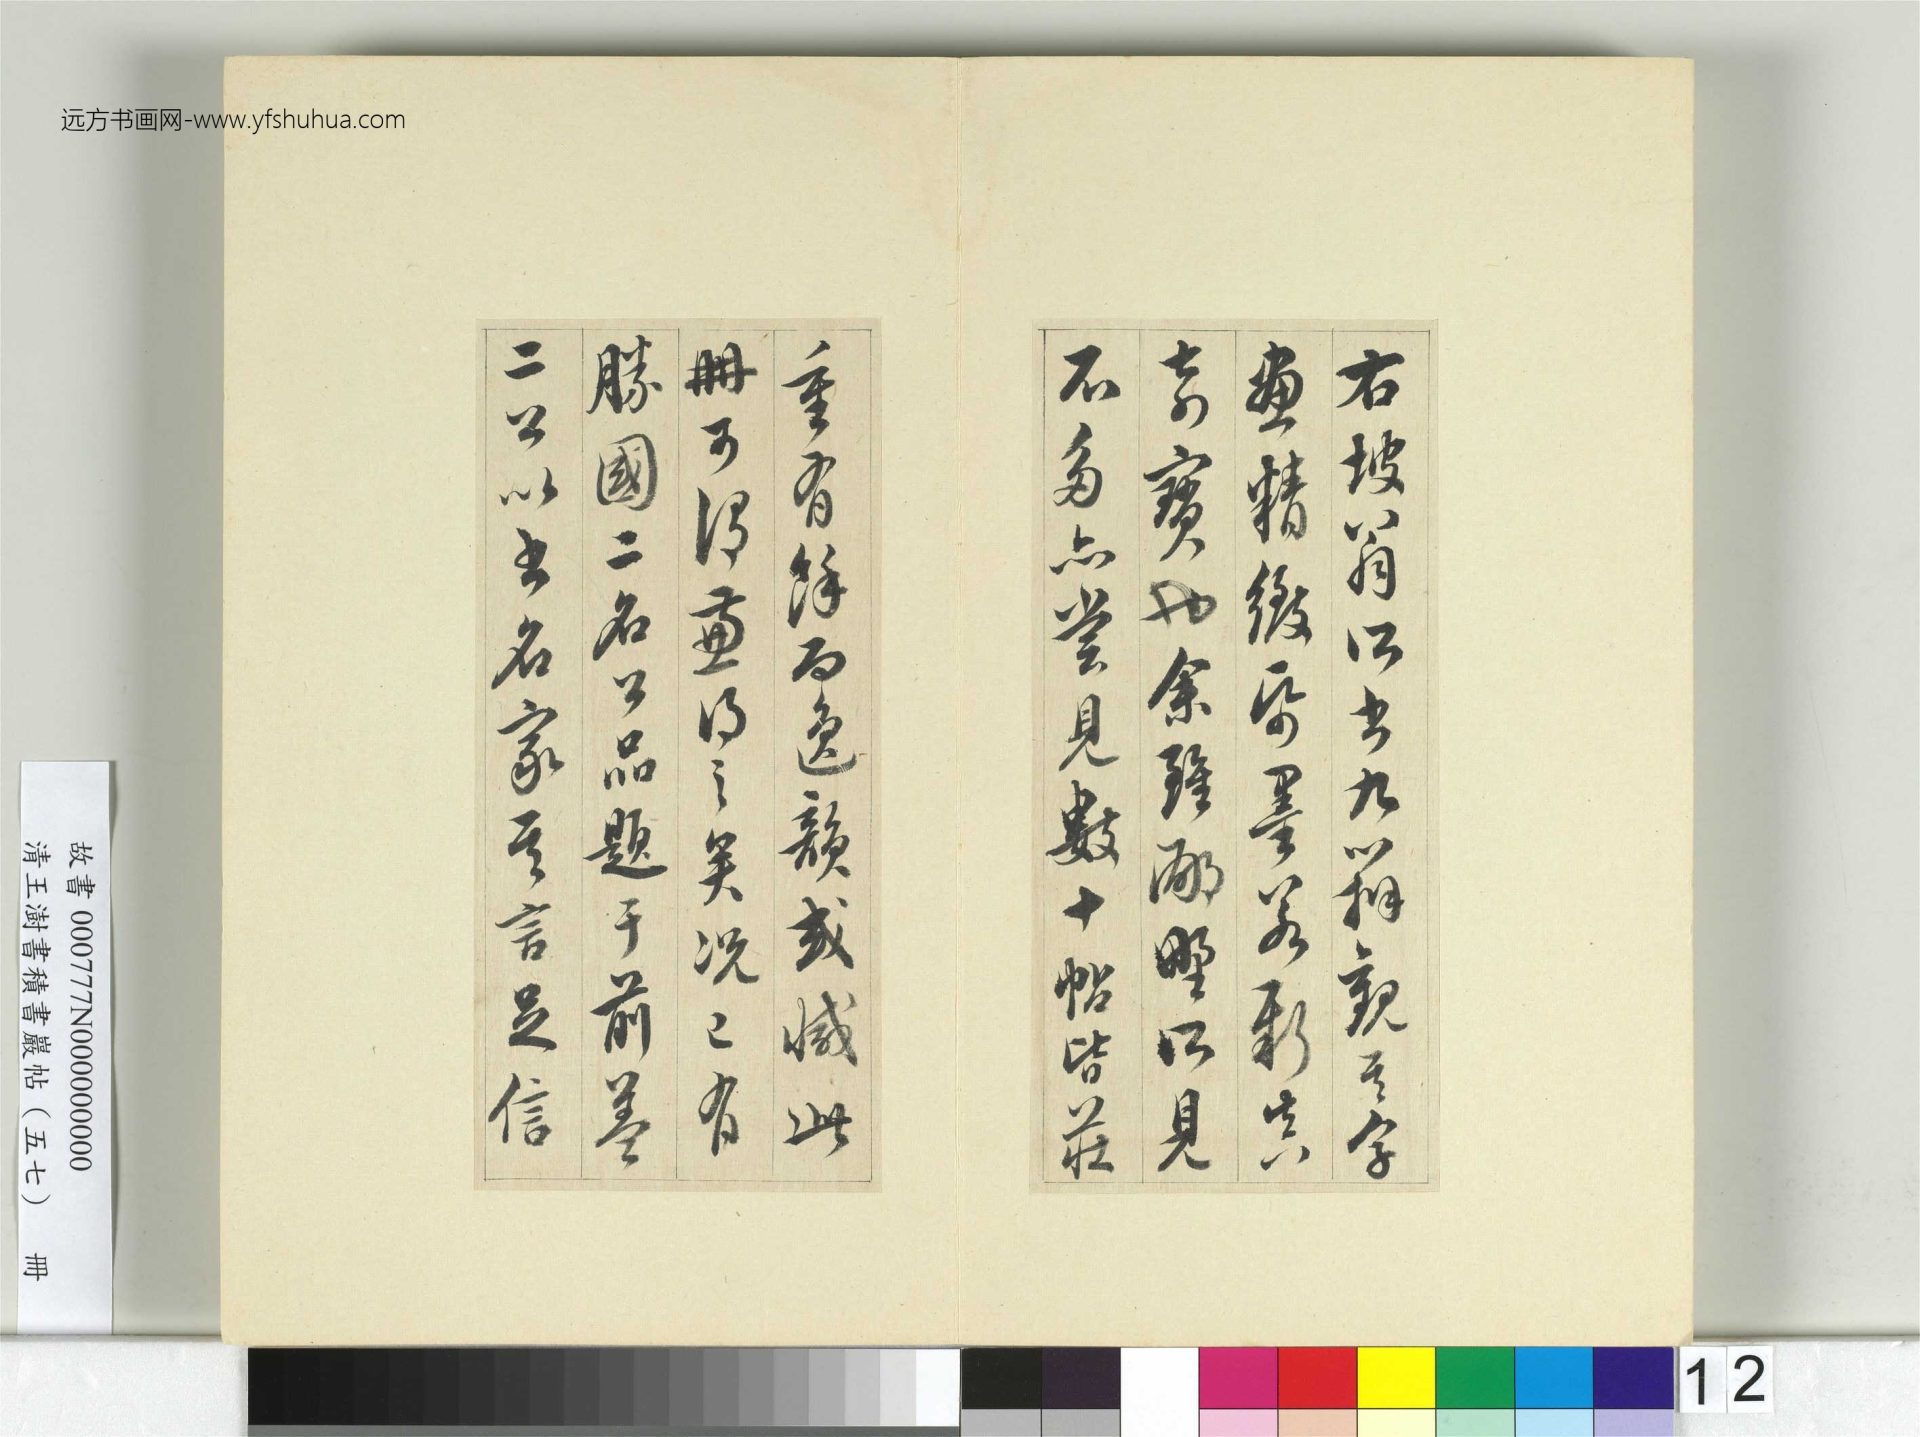 远方书画网-www.yfshuhua.com
右坡翁所书九辩觀其字
畫精緻紙墨若新真
奇寶也余雖鄙野所見
不多亦嘗見數十帖皆莊
重有餘而逸韻或減此
冊可謂兼得之矣況已有
勝國二名公品題于前蓋
二公以书名家其言足信
故書 000777N000000000
清王澍書積書巖帖（五七） 冊
12